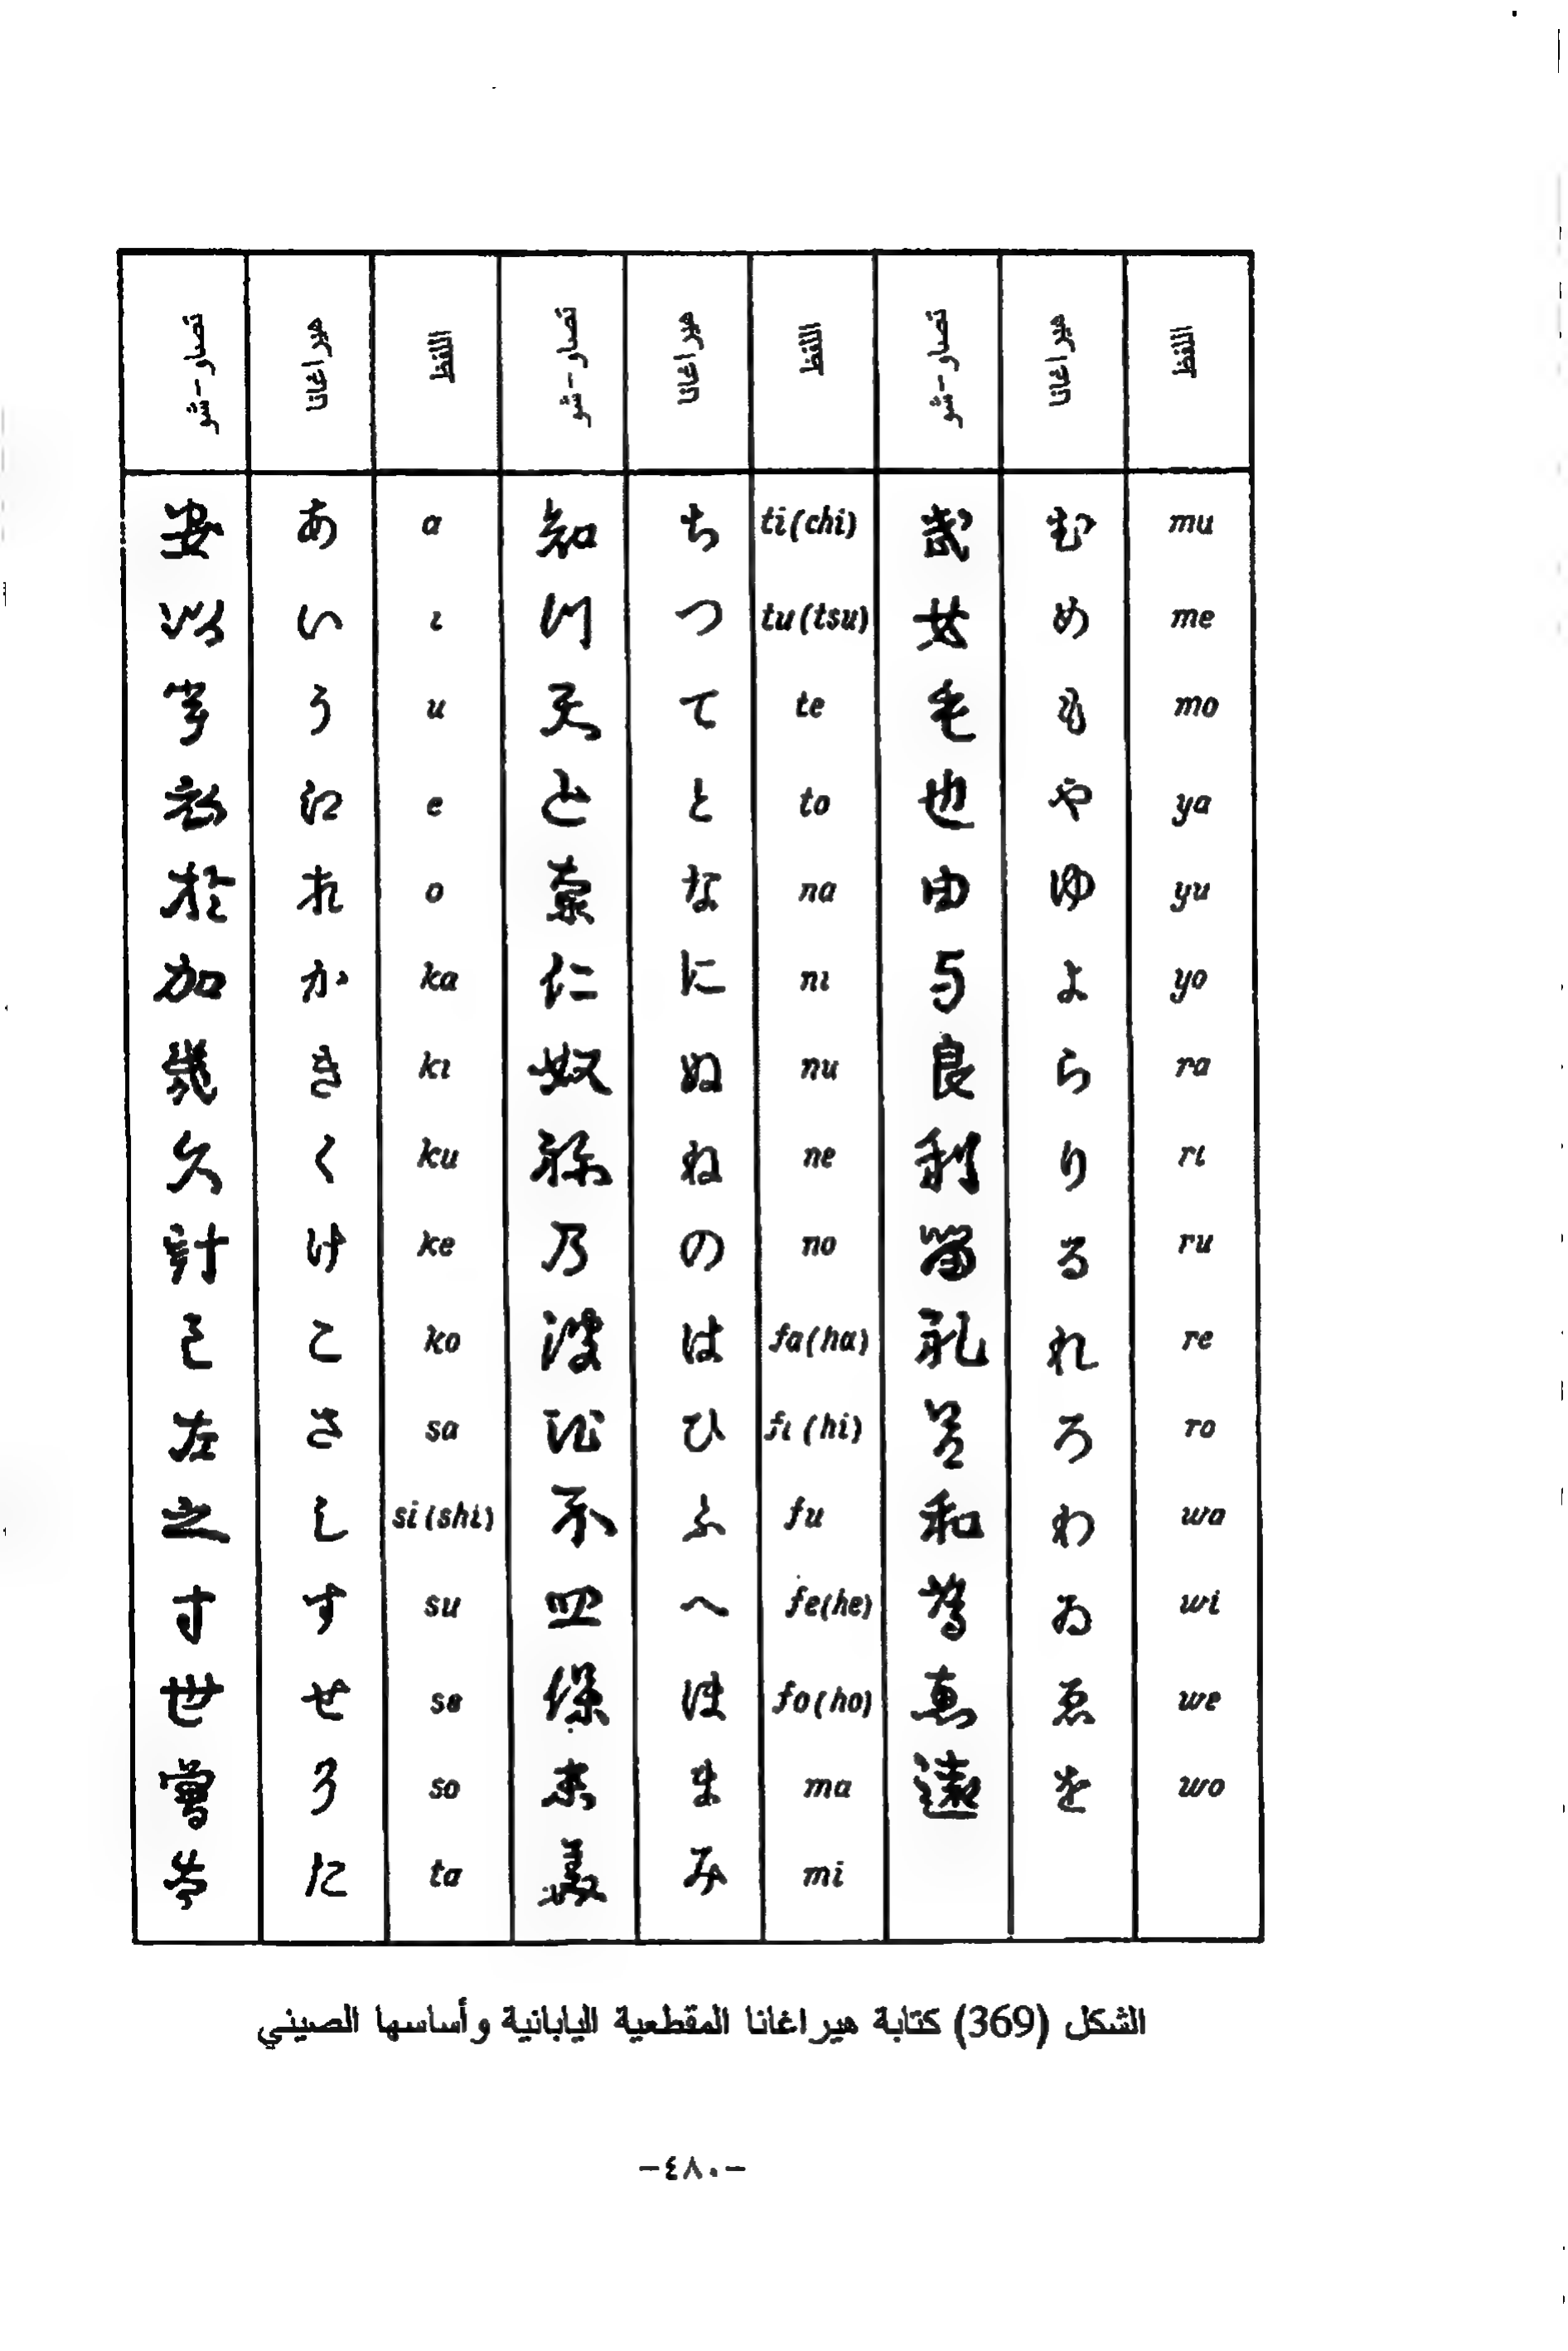 تصاو-شو هيراغانا اللفظ تصاو-شو هيراغانا اللفظ تصاو-شو هيراغانا اللفظ
安 あ a 知 ち ti(chi) 武 む mu
以 い ι 川 つ tu(tsu) 女 め me
宇 う u 天 て te 毛 も mo
衣 え e と to 也 や ya
於 お o 奈 な na 由 ゆ yu
加 か ka 仁 に nι 与 よ yo
幾 き kι 奴 ぬ nu 良 ら ra
久 く ku 祢 ね ne 利 り rι
計 け ke 乃 の no 留 る ru
己 こ ko 波 は fa(ha) 礼 れ re
左 さ sa 比 ひ fι (hi) 呂 ろ ro
之 し si(shi) 不 ふ fu 和 わ wa
寸 す su へ fe(he) 為 ゐ wi
世 せ se 保 ほ fo(ho) 恵 ゑ we
曽 そ so 末 ま ma 遠 を wo
た ta 美 み mi
الشكل (369) كتابة هيراغانا المقطعية اليابانية وأساسها الصيني
-٤٨٠-